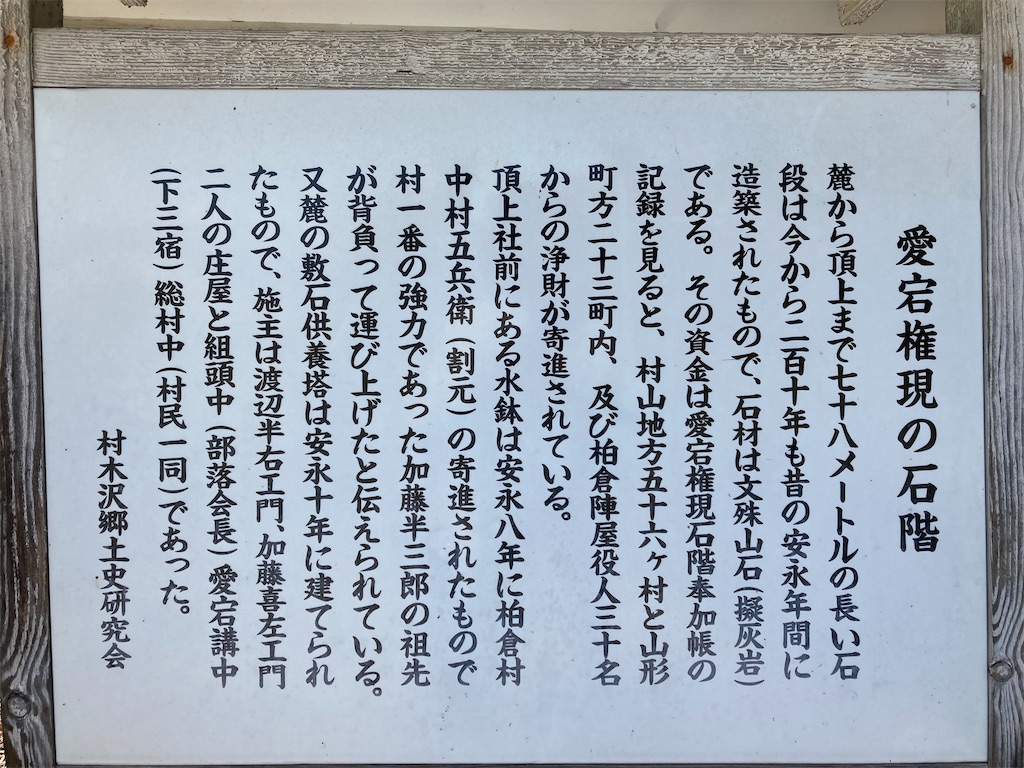 愛宕権現の石階
麓から頂上まで七十八メートルの長い石
段は今から二百十年も昔の安永年間に
造築されたもので、石材は文殊山石（擬灰岩）
である。その資金は愛宕権現石階奉加帳の
記録を見ると、村山地方五十六ヶ村と山形
町方二十三町内、及び柏倉陣屋役人三十名
からの浄財が寄進されている。
頂上社前にある水鉢は安永八年に柏倉村
中村五兵衛（割元）の寄進されたもので
村一番の強力であった加藤半三郎の祖先
が背負って運び上げたと伝えられている。
又麓の敷石供養塔は安永十年に建てられ
たもので、施王は渡辺半右エ門、加藤喜左エ門
二人の庄屋と組頭中（部落会長）愛宕講中
（下三宿）総村中（村民一同）であった。
村木沢郷土史研究会